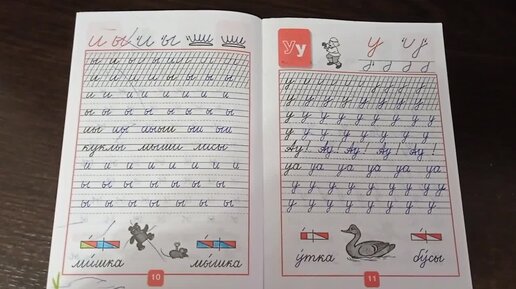 и ы и ы
и и и и и и и и
ы ы ы ы ы ы ы ы
куклы мыши лисы
и и и и и и и и и
ы ы ы ы ы ы ы ы
ы ы ы ы ы ы ы ы
мишка мышка
10
Уу у
у у у у у у у у у
у у у у у у у у у
у у у у у у у у у
у у у у у у у у у
Ау! Ау! Ау! Ау! Ау!
уа уа уа уа уа уа
у у у у у у у у у
у у у у у у у у у
у́тка бу́сы
11